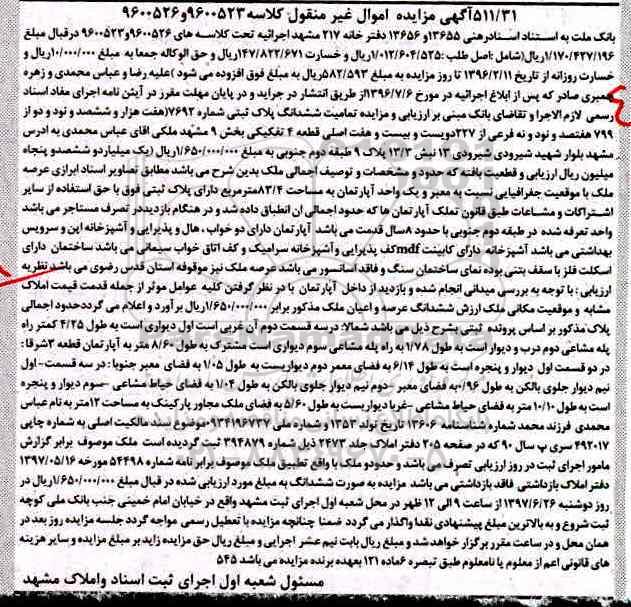 ۵۱۱/۳۱آگهی مزایده اموال غیر منقول کلاسه ۹۶۰۰۵۲۳و۹۶۰۰۵۲۶
بانک ملت به استناد اسنادرهنی ۱۳۶۵۵و ۱۳۶۵۶ دفتر خانه ۲۱۷ مشهد اجرائیه تحت کلاسه های ۹۶۰۰۵۲۶و ۹۶۰۰۵۲۳ درقبال مبلغ
۱/۱۷۰/۴۲۷/۱۹۶ریال(شامل :اصل طلب :۱/۰۱۲/۶۰۴/۵۲۵ریال و خسارت ۱۴۷/۸۲۲/۶۷۱ریال و حق الوکاله جمعا به مبلغ ۱۰/۰۰۰/۰۰۰ریال و
خسارت روزانه از تاریخ ۱۳۹۶/۲/۱۱ تا روز مزایده به مبلغ ۵۸۲/۵۹۳ریال به مبلغ فوق افزوده می شود )علیه رضا و عباس محمدی و زهره
صادر که پس از ابلاغ اجرائیه در مورخ ۱۳۹۶/۷/۶از طریق انتشار در جراید و در پایان مهلت مقرر در آیین نامه اجرای مفاد اسناد
رسمی لازم الاجرا و تقاضای بانک مبنی بر ارزیابی و مزایده تمامیت ششدانگ پلاک ثبتی شماره ۷۶۹۲(هفت هزار و ششصد و نود و دو از
۷۹۹ هفتصد و نود و نه فرعی از ۲۲۷دویست و بیست و هفت اصلی قطعه ۴ تفکیکی بخش ۹ مشهد ملکی اقای عباس محمدی به ادرس
مشهد بلوار شهید شیرودی شیرودی ۱۳ نبش ۱۳/۲ پلاک ۹ طبقه دوم جنوبی به مبلغ ۱/۶۵۰/۰۰۰/۰۰۰ریال (یک میلیاردو ششصدو پنجاه
میلیون ریال ارزیابی و قطعیت یافته که حدود و مشخصات و توصیف اجمالی ملک بدین شرح می باشد مطابق تصاویر اسناد ابرازی عرصه
ملک با موقعیت جغرافیایی نسبت به معبر و یک واحد آپارتمان به مساحت ۸۳/۴مترمربع دارای پلاک ثبتی فوق با حق استفاده از سایر
اشتراکات و مشاعات طبق قانون تملک آپارتمان ها که حدود اجمالی ان انطباق داده شد و در هنگام بازدیددر تصرف مستاجر می باشد
واحد تعرفه شده در طبقه دوم جنوبی با حدود ۸سال قدمت می باشد آپارتمان دارای دو خواب ، هال و پذیرایی و آشپزخانه اپن و سرویس
بهداشتی می باشد آشپزخانه دارای کابینت mdfکف پذیرایی وآشپزخانه سرامیک و کف اتاق خواب سیمانی می باشد ساختمان دارای
اسکلت فلز با سقف بتنی بوده نمای ساختمان سنگ و فاقد اسانسور می باشد عرصه ملک نیز موقوفه استان قدس رضوی می باشد نظریه
ارزیابی : با توجه به بررسی میدانی انجام شده و بازدید از داخل آپارتمان با در نظر گرفتن کلیه عوامل موثر از جمله قدمت قیمت املاک
مشابه و موقعیت مکانی ملک ارزش ششدانگ عرصه و اعیان ملک مذکور برابر ۱/۶۵۰/۰۰۰/۰۰۰ریال برآورد و اعلام می گرددحدود اجمالی
پلاک مذکور بر اساس پرونده ثبتی بشرح ذیل می باشد شمالا: در سه قسمت دوم آن غربی است اول دیواری است به طول ۴/۲۵ کمتر راه
پله مشاعی دوم درب و دیوار است به طول ۱/۷۸ به راه پله مشاعی سوم دیواری است مشترک به طول ۸/۶۰ متر به آپارتمان قطعه ۳شرقا :
در دو قسمت اول دیوار و پنجره است به طول ۶/۱۴ به فضای معبر دوم دیواریست به طول ۱/۰۵ به فضای معبر جنوبا : در سه قسمت- اول
نیم دیوار جلوی بالکن به طول ۰/۹۶به فضای معبر -دوم نیم دیوار جلوی بالکن به طول ۱/۰۴ به فضای حیاط مشاعی –سوم دیوار و پنجره
است به طول ۱۰/۱۰ متر به فضای حیاط مشاعی –غربا دیواریست به طول ۵/۶۰ به فضای ملک مجاور پارکینگ به مساحت ۱۲متر به نام عباس
محمدی فرزند محمد شماره شناسنامه ۱۳۶۰۶ تاریخ تولد ۱۳۵۳ و شماره ملی ۰۹۳۴۱۹۶۷۳۷موضوع سند مالکیت اصلی به شماره چاپی
۴۹۲۰۱۷ سری پ سال ۹۰ که در صفحه ۲۰۵ دفتر املاک جلد ۲۴۷۳ ذیل شماره ۳۹۴۸۷۹ ثبت گردیده است ملک موصوف برابر گزارش
مامور اجرای ثبت در روز ارزیابی تصرف می باشد و حدودو ملک با واقع تطبیق ملک موصوف برابر نامه شماره ۵۴۴۹۸ مورخه ۱۳۹۷/۰۵/۱۶
دفتر املاک بازداشتی فاقد بازداشتی می باشد مزایده به صورت ششدانگ به مقدار مورد ارزیابی شده در قبال مبلغ ۱/۶۵۰/۰۰۰/۰۰۰ریال در
روز دوشنبه ۱۳۹۷/۶/۲۶ از ساعت ۹ الی ۱۲ ظهر در محل شعبه اول اجرای ثبت مشهد واقع در خیابان امام خمینی جنب بانک ملی کوچه
ثبت شروع و به بالاترین مبلغ پیشنهادی نقدا واگذار می گردد ضمنا چنانچه مزایده با تعطیل رسمی مواجه گردد جلسه مزایده روز بعد در
همان محل و در ساعت مقرر برگزار خواهد شد و مبلغ ریال بابت نیم عشر اجرایی و مبلغ ریال حق مزایده زاید بر مبلغ مزایده و سایر هزینه
های قانونی اعم از معلوم یا نامعلوم طبق تبصره ۶ماده ۱۲۱ بعهده برنده مزایده می باشد ۵۴۵
مسئول شعبه اول اجرای ثبت اسناد واملاک مشهد